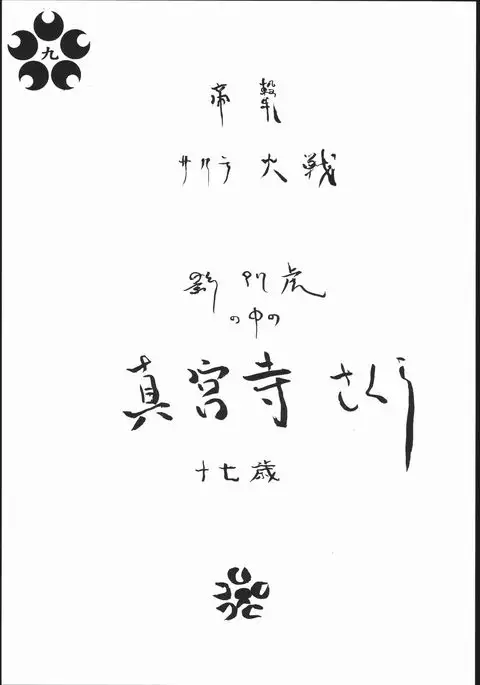 九
帝撃
サクラ大戦
劉別虎
の中の
真宮寺 さくら
十七歳